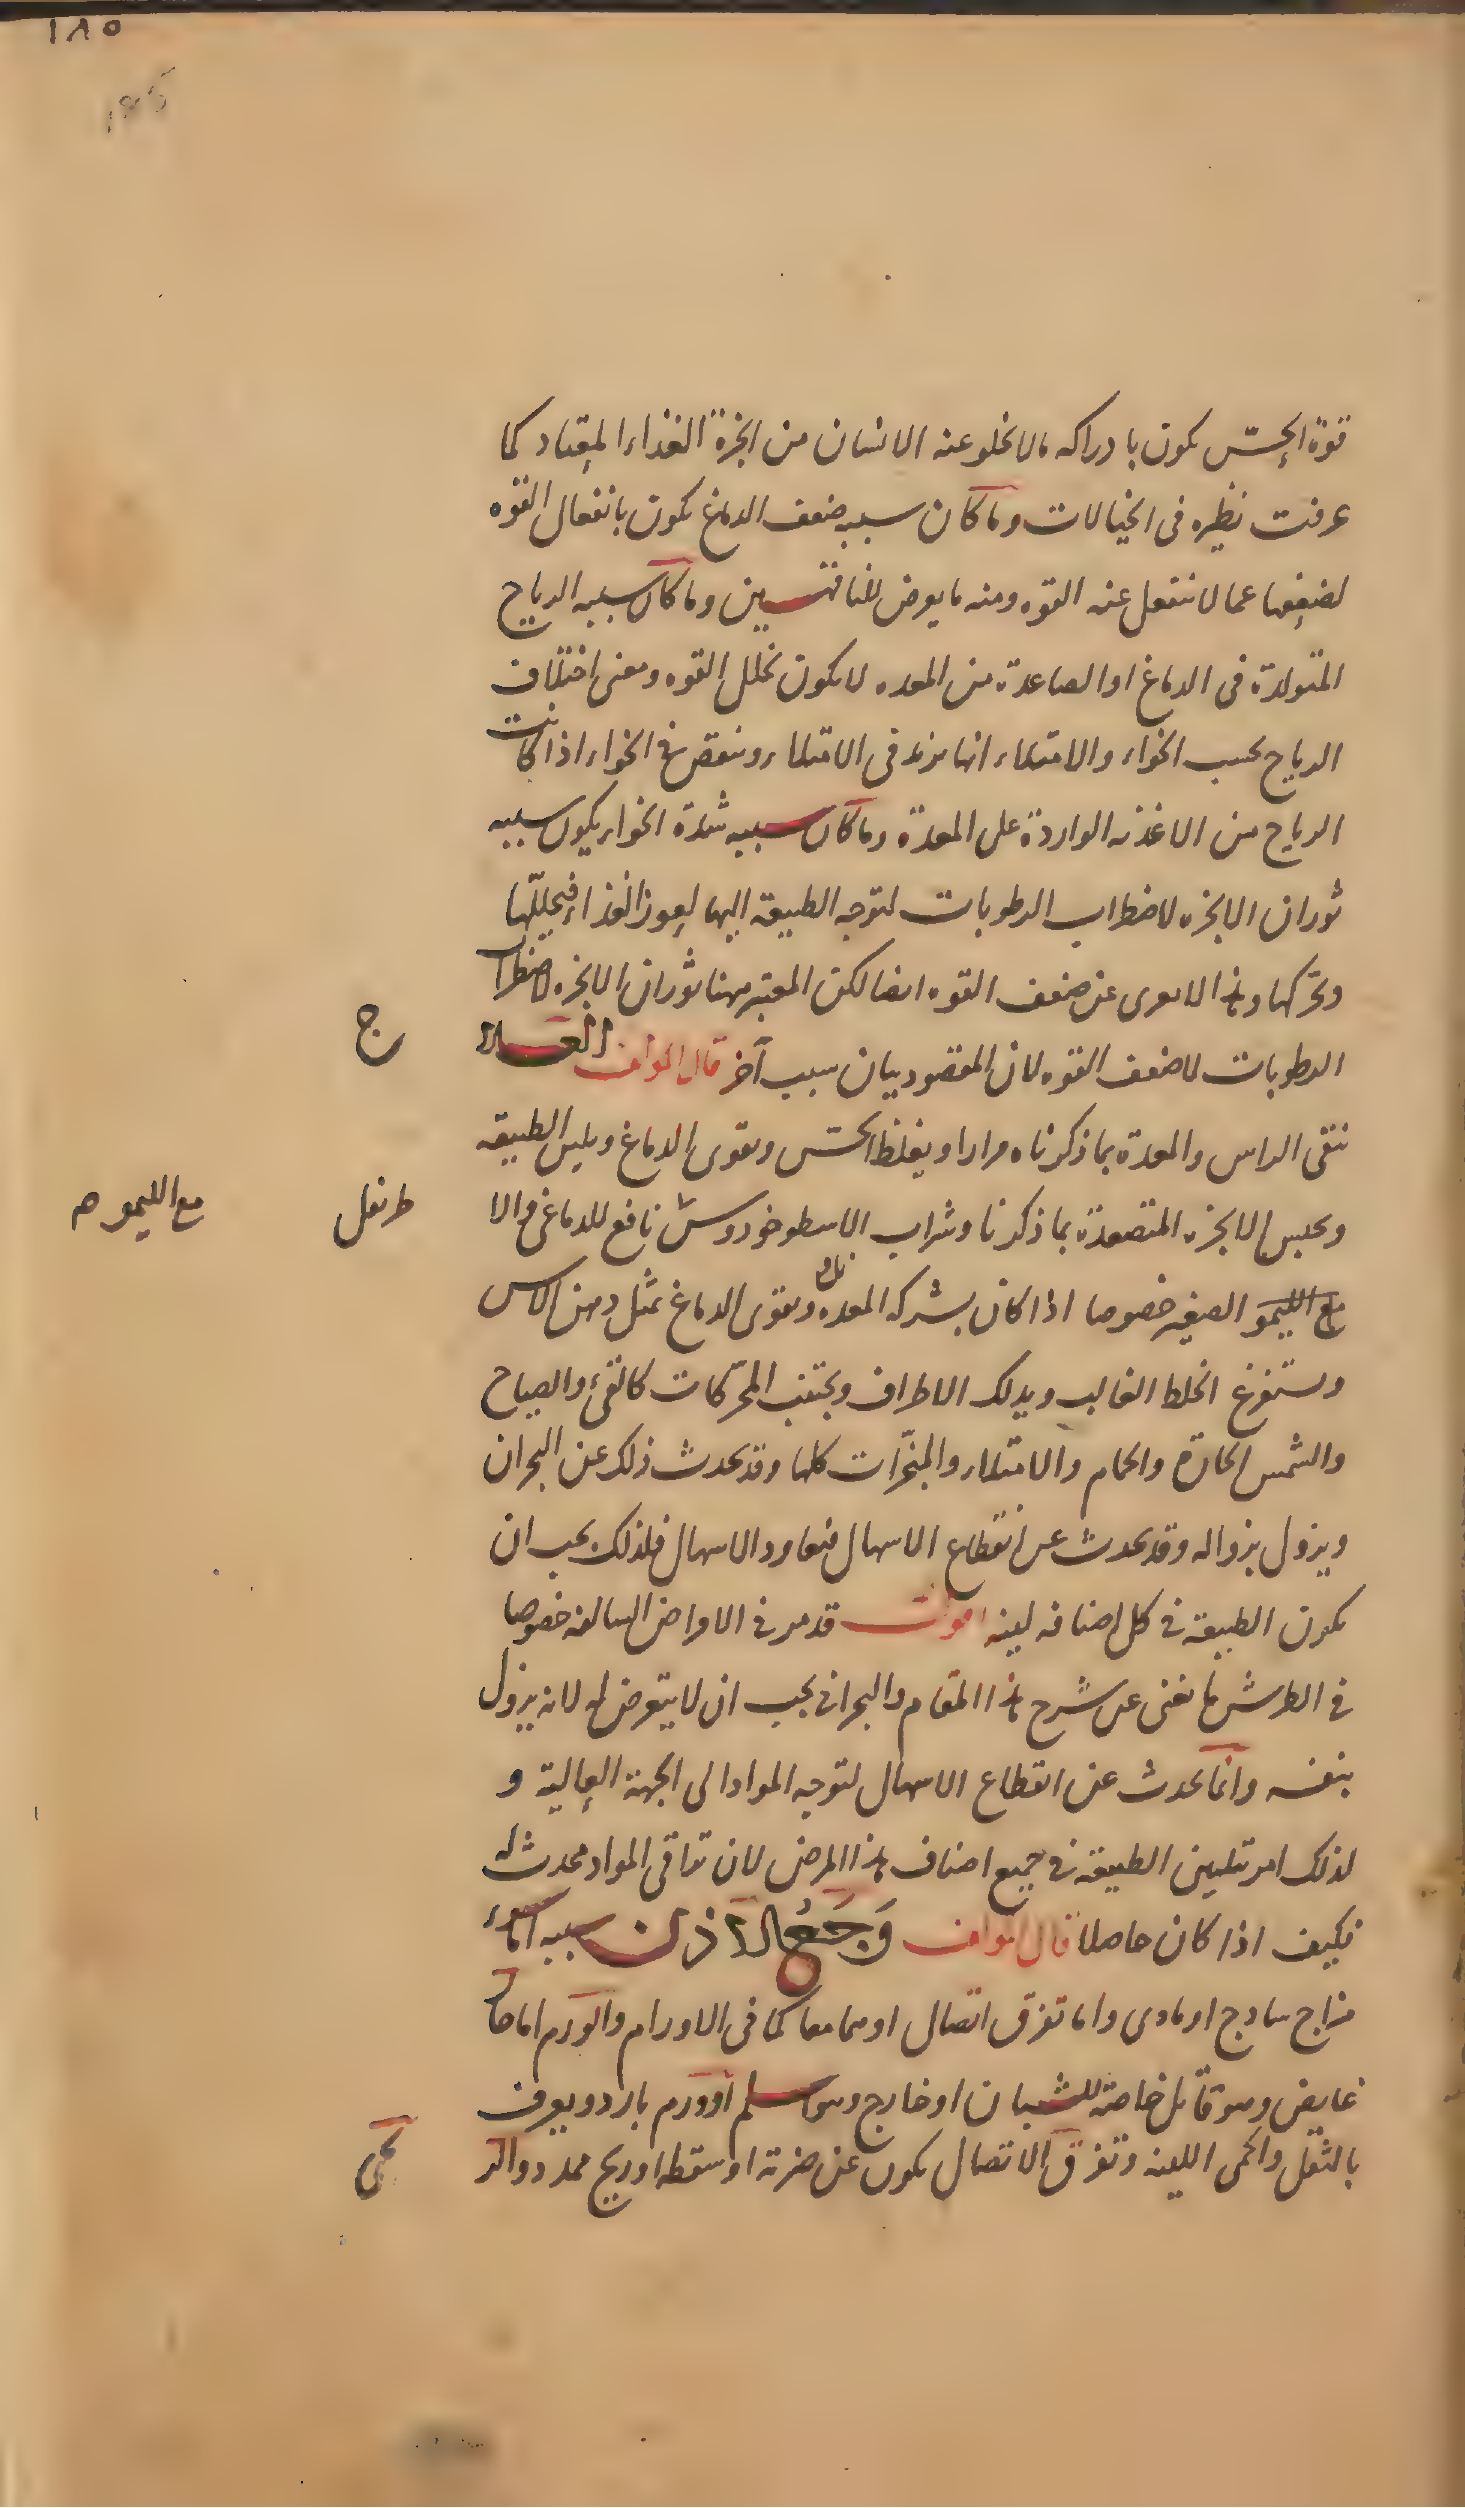 ١٨٥
١٨٥
قوة الحس يكون بادراكه مالا يخلو عنه الانسان من ابخرة الغذاء المعتاد كما
عرفت نظيره في الخيالات وما كان سببه ضعف الدماغ يكون بانفعال القوه
لضعفها عما لا تنفعل عنه القوه ومنه ما يعرض للناقهين وما كان سببه الرياح
المتولدة في الدماغ او الصاعدة من المعده لا يكون تحلل القوه ومعنى اختلاف
الرياح بحسب الخواء والامتلاء انها تزيد في الامتلاء وتنقص في الخواء اذا كانت
الرياح من الاغذيه الواردة على المعدة وما كان سببه شدة الخواء يكون سببه
ثوران الابخره لاضطراب الرطوبات لتوجه الطبيعة اليها لعوز الغذاء فيحللها
ويحركها وهذا لا يعرى عن ضعف القوه ايضا لكن المعتبر ههنا ثوران الابخره لاضطراب
الرطوبات لا ضعف القوه لان المقصود بيان سبب آخر قال المولف العلا
ج
تنقى الراس والمعدة بما ذكرناه مرارا ويغلظ الحس ويقوى الدماغ ويلين الطبيعه
ويحبس الابخره المتصعدة بما ذكرنا وشراب الاسطوخودوس نافع للدماغى والا
طريفل
مع الليمو صح
مع الليمو الصغير خصوصا اذا كان بشركه المعده ويقوى الدماغ بمثل دهن الاس
ويستفرغ الخلط الغالب ويدلك الاطراف ويجتنب المحركات كالقئ والصياح
والشمس الحارة والحمام والامتلاء والمبخرات كلها وقد يحدث ذلك عن البحران
ويزول بزواله وقد يحدث عن انقطاع الاسهال فيعاود الاسهال فلذلك يجب ان
يكون الطبيعة في كل اصنافه لينه اقول قد مر في الامراض السالفه خصوصا
في الطرش ما يغنى عن شرح هذا المقام والبحرانى يجب ان لا يتعرض له لانه يزول
بنفسه وانما يحدث عن انقطاع الاسهال لتوجه المواد الى الجهة العالية و
لذلك امر بتليين الطبيعة في جميع اصناف هذا المرض لان تراقى المواد محدث له
فكيف اذا كان حاصلا قال المولف وَجَعُ الاذن سببه اما سوء
مزاج ساذج او مادى واما تفرق اتصال او هما معا كما في الاورام والورم اما حار
غايض وهو قاتل خاصة للشبان او خارج وهو اسلم او ورم بارد ويعرف
بالثقل والحمى اللينه وتفرق الاتصال يكون عن ضربة او سقطه او ريح ممدد والر